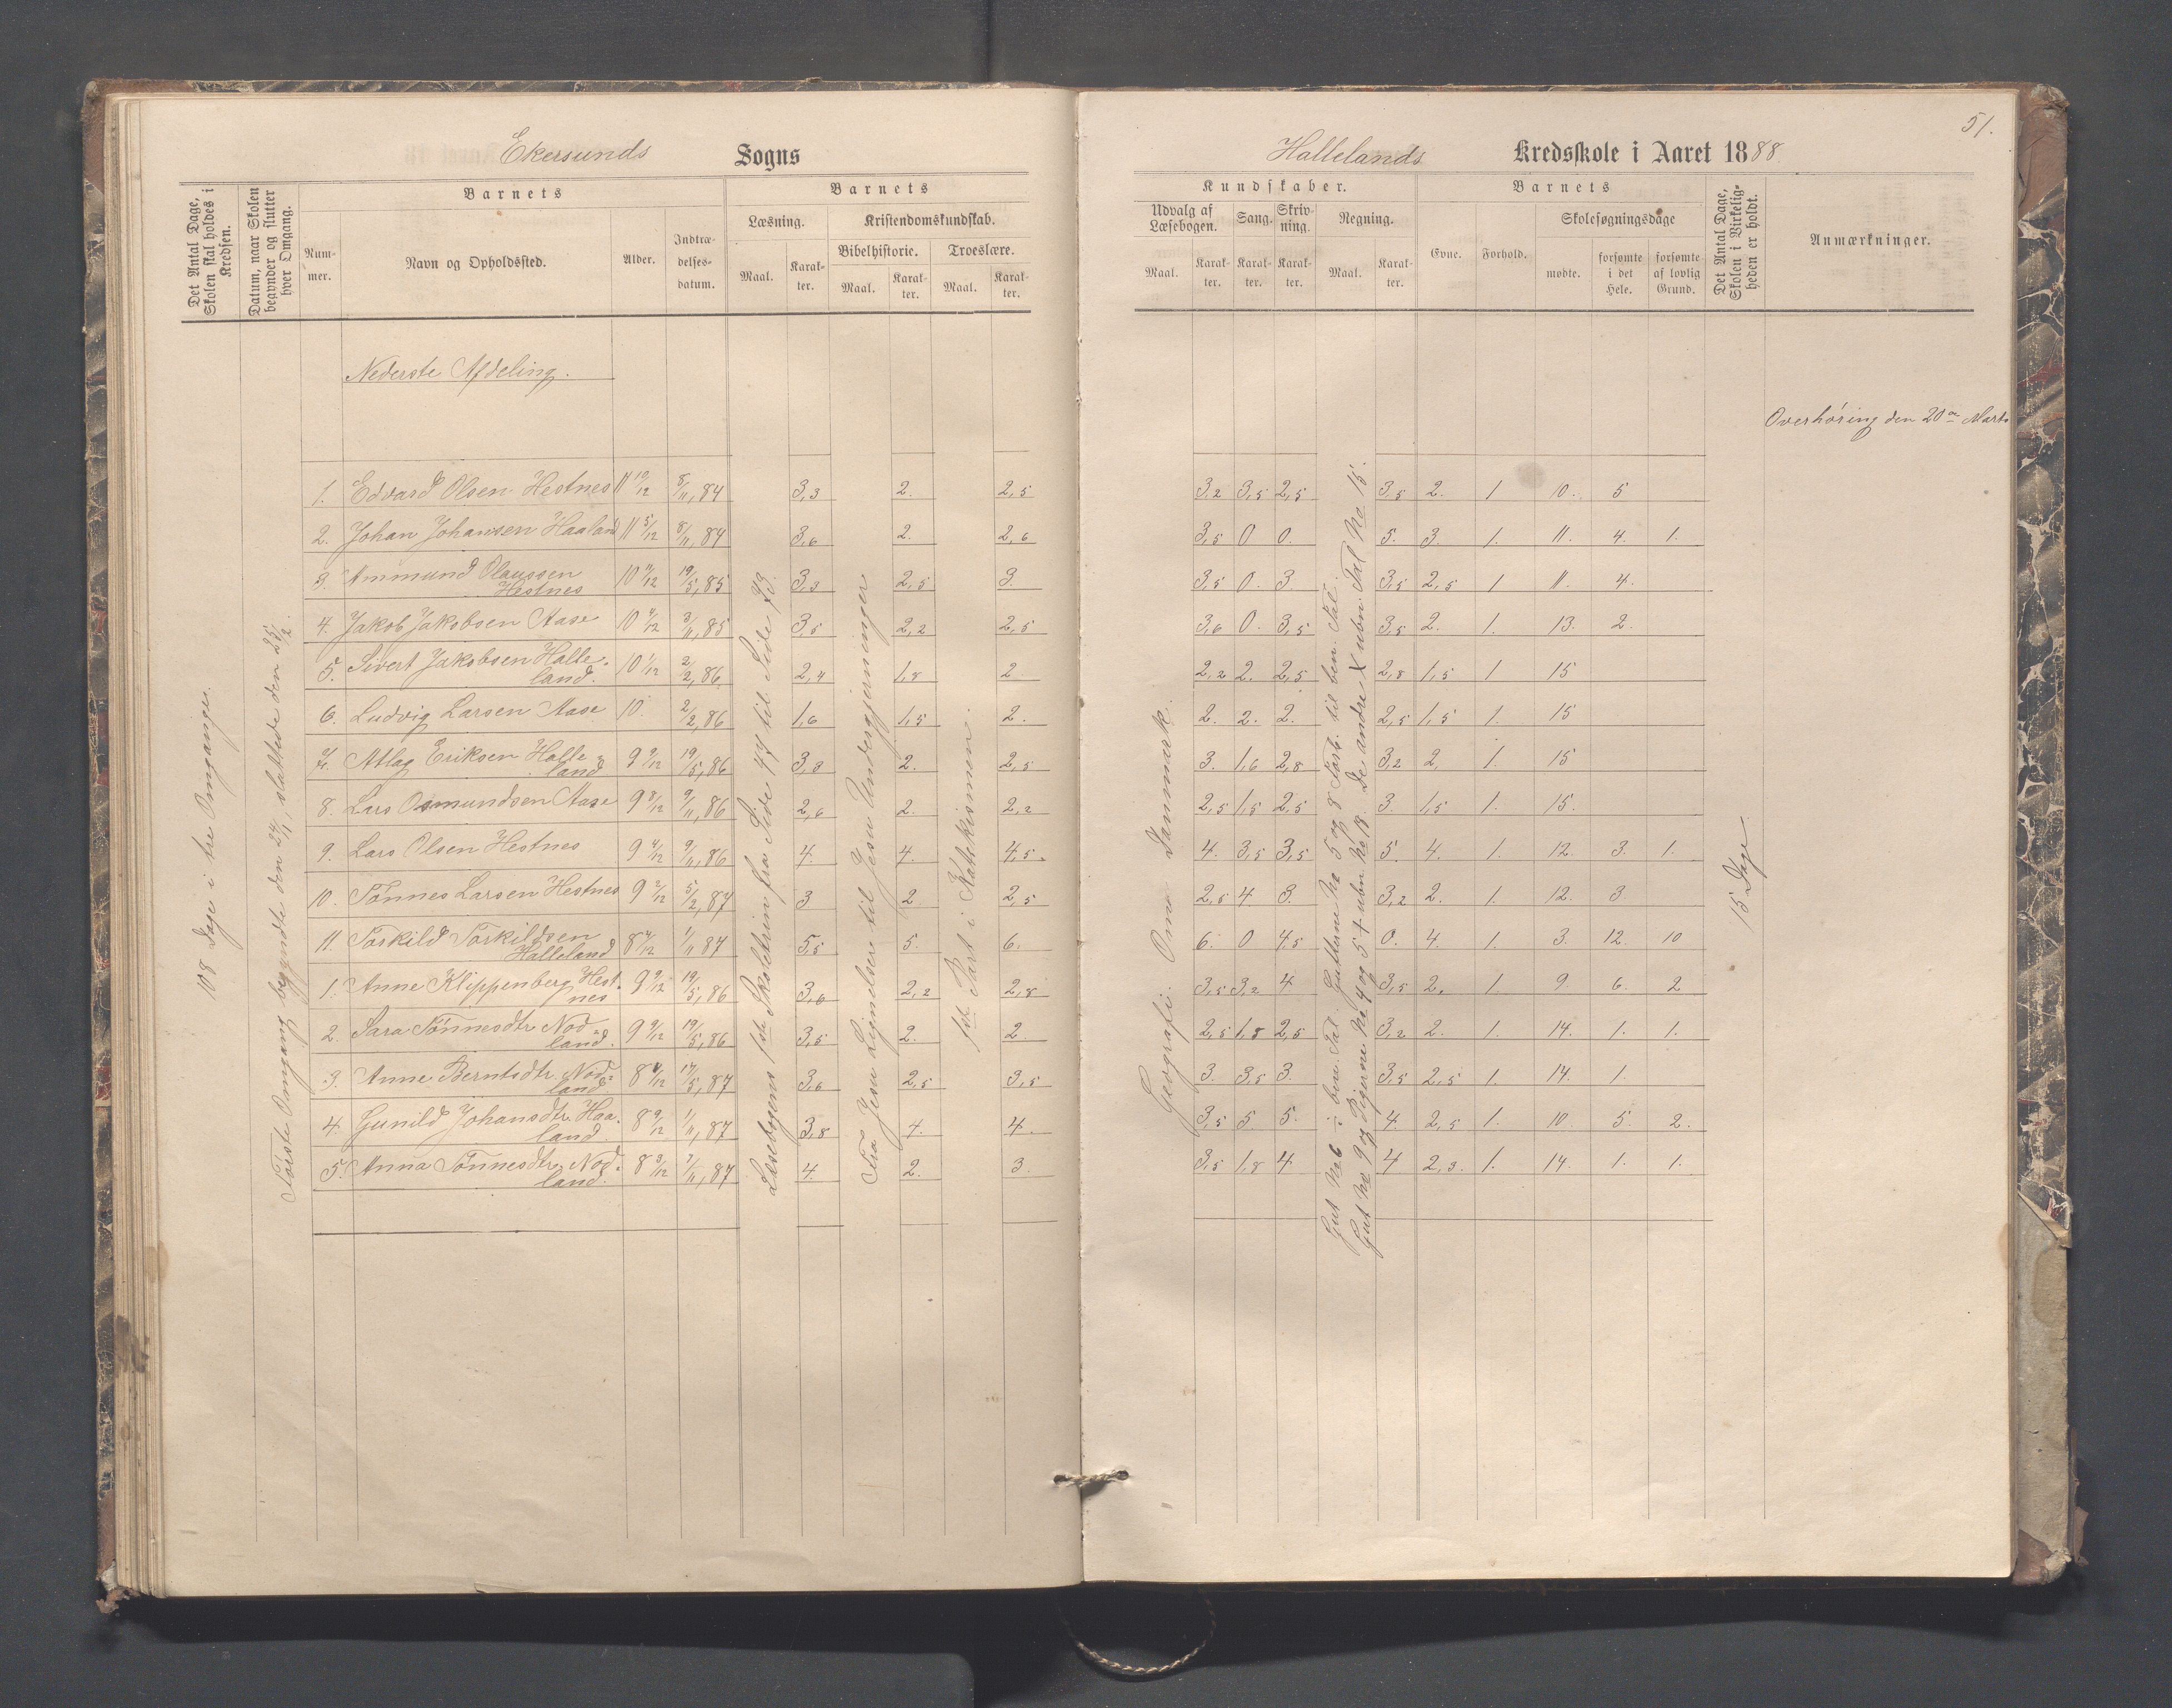 51.
Ekersunds Sogns
Hallelands Kredsskole i Aaret 1888.
Det Antal Dage, Skolen skal holdes i Kredsen.
Datum, naar Skolen begynder og slutter hver Omgang.
Barnets
Num-mer.
Navn og Opholdssted.
Alder.
Indtræ-delses-datum.
Barnets
Læsning.
Maal.
Karak-ter.
Kristendomskundskab.
Bibelhistorie.
Maal.
Karak-ter.
Troeslære.
Maal.
Karak-ter.
Kundskaber.
Udvalg af Læsebogen.
Maal.
Karak-ter.
Sang.
Karak-ter.
Skriv-ning.
Karak-ter.
Regning.
Maal.
Karak-ter.
Barnets
Evne.
Forhold.
Skolesøgningsdage
mødte.
forsømte i det Hele.
forsømte af lovlig Grund.
Det Antal Dage, Skolen i Virkelig-heden er holdt.
Anmærkninger.
Nederste Afdeling.
Overhøring den 20de Marts
1. Edvard Olsen Hestnes 11 10/12 8/11, 84 3,3 2. 2,5 3,2 3,5 2,5 3,5 2. 1 10. 5
2. Johan Johansen Haaland 11 5/12 8/11, 84 3,6 2. 2,6 3,5 0 0. 5. 3. 1. 11. 4. 1.
3. Ammund Olaussen Hestnes 10 9/12 19/5, 85 3,3 2,5 3. 3,5 0. 3. 3,5 2,5 1 11. 4.
4. Jakob Jakobsen Aase 10 4/12 3/11, 85 3,5 2,2 2,5 3,6 0. 3,5 3,5 2. 1. 13. 2.
5. Sivert Jakobsen Halleland. 10 1/12 2/2, 86. 2,4 1,8 2 2,2 2. 2,5 2,8 1,5 1 15
6. Ludvig Larsen Aase 10. 2/2, 86 1,6 1,5 2. 2. 2. 2. 2,5 1,5 1. 15
7. Atlag Eriksen Halleland 9 9/12 19/5, 86 3,3 2. 2,5 3. 1,6 2,8 3,2 2. 1. 15
8. Lars Osmundsen Aase 9 8/12 9/11, 86 2,6 2. 2,2 2,5 1,5 2,5 3. 1,5 1. 15.
9. Lars Olsen Hestnes 9 4/12 9/11, 86 4. 4. 4,5. 4. 3,5 3,5 5. 4. 1. 12. 3. 1.
10. Tønnes Larsen Hestnes 9 2/12 5/2, 87 3 2 2,5 2,5 4. 3. 3,2 2. 1. 12. 3
11. Torkild Torkildsen Halleland 8 4/12 1/11 87 5,5 5. 6. 6. 0 4,5 0. 4. 1. 3. 12. 10
1. Anne Klippenberg Hestnes 9 9/12 19/5, 86 3,6 2,2 2,8 3,5 3,2 4 3,5 2. 1. 9. 6. 2
2. Sara Tønnesdtr Nodland. 9 9/12 19/5, 86 3,5 2. 2. 2,5 1,8 2,5 3,2 2. 1. 14. 1. 1.
3. Anne Berntsdtr Nodland 8 4/12 17/5, 87 3,6 2,5 3,5 3. 3,5 3. 3,5 2,5 1. 14. 1.
4. Gunild Johansdtr Haaland 8 9/12 1/11, 87 3,8 4. 4. 3,5 5 5. 4. 2,5 1. 10. 5. 2.
5. Anna Tønnesdtr Nodland. 8 3/12 1/11, 87 4. 2. 3. 3,5 1,8 4 4 2,3. 1. 14 1. 1.
108 Dage i tre Omgange.
Første Omgang begyndte den 24/1, sluttede den 25/2.
Læsebogens 1ste Skoletrin fra Side 44 til Side 73.
Fra Jesu Lignelser til Jesu Undergjerninger
1ste Part i Katekismen.
Geografi. Om Danmark.
Gut No 6 i: ben. Tal. Gutterne No 5 og 8 Forb. til ben. Tal.
Gut No 9 og Pigerne No 4 og 5 + ubn. No 18. De andre X ubn. Tal No 15.
15 Dage